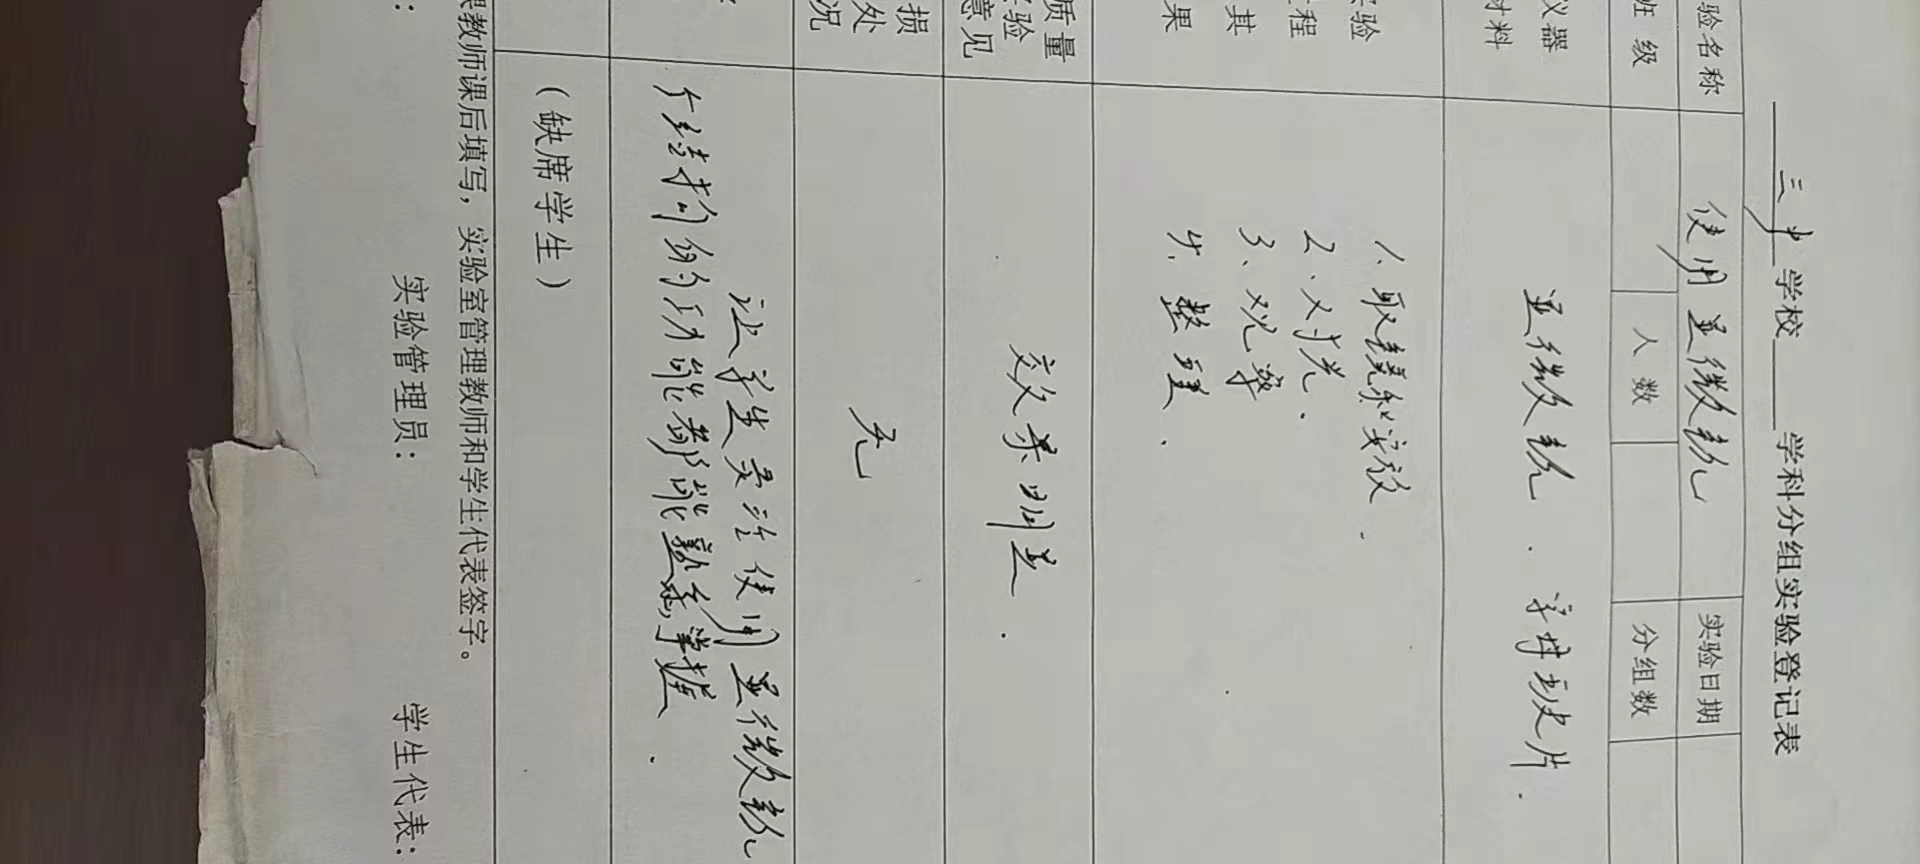 三中学校 学科分组实验登记表
验名称 使用显微镜 实验日期
班 级 人 数 分组数
仪器
材料
显微镜．字母玻片．
实验
程
其
果
1. 取镜和安放．
2. 对光．
3、观察
4. 整理．
质量
实验
意见
效果明显．
损
处
况
无
让学生灵活使用显微镜
个结构的功能都能熟悉掌握．
（缺席学生）
课教师课后填写，实验室管理教师和学生代表签字。
： 实验管理员： 学生代表：